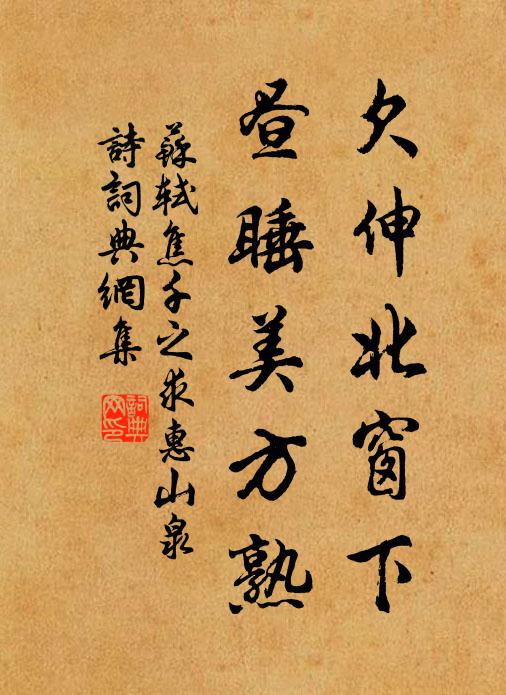 欠伸北窗下
昼睡美方熟
蘇軾焦千之求惠山泉
詩詞典網集
詞典
网印